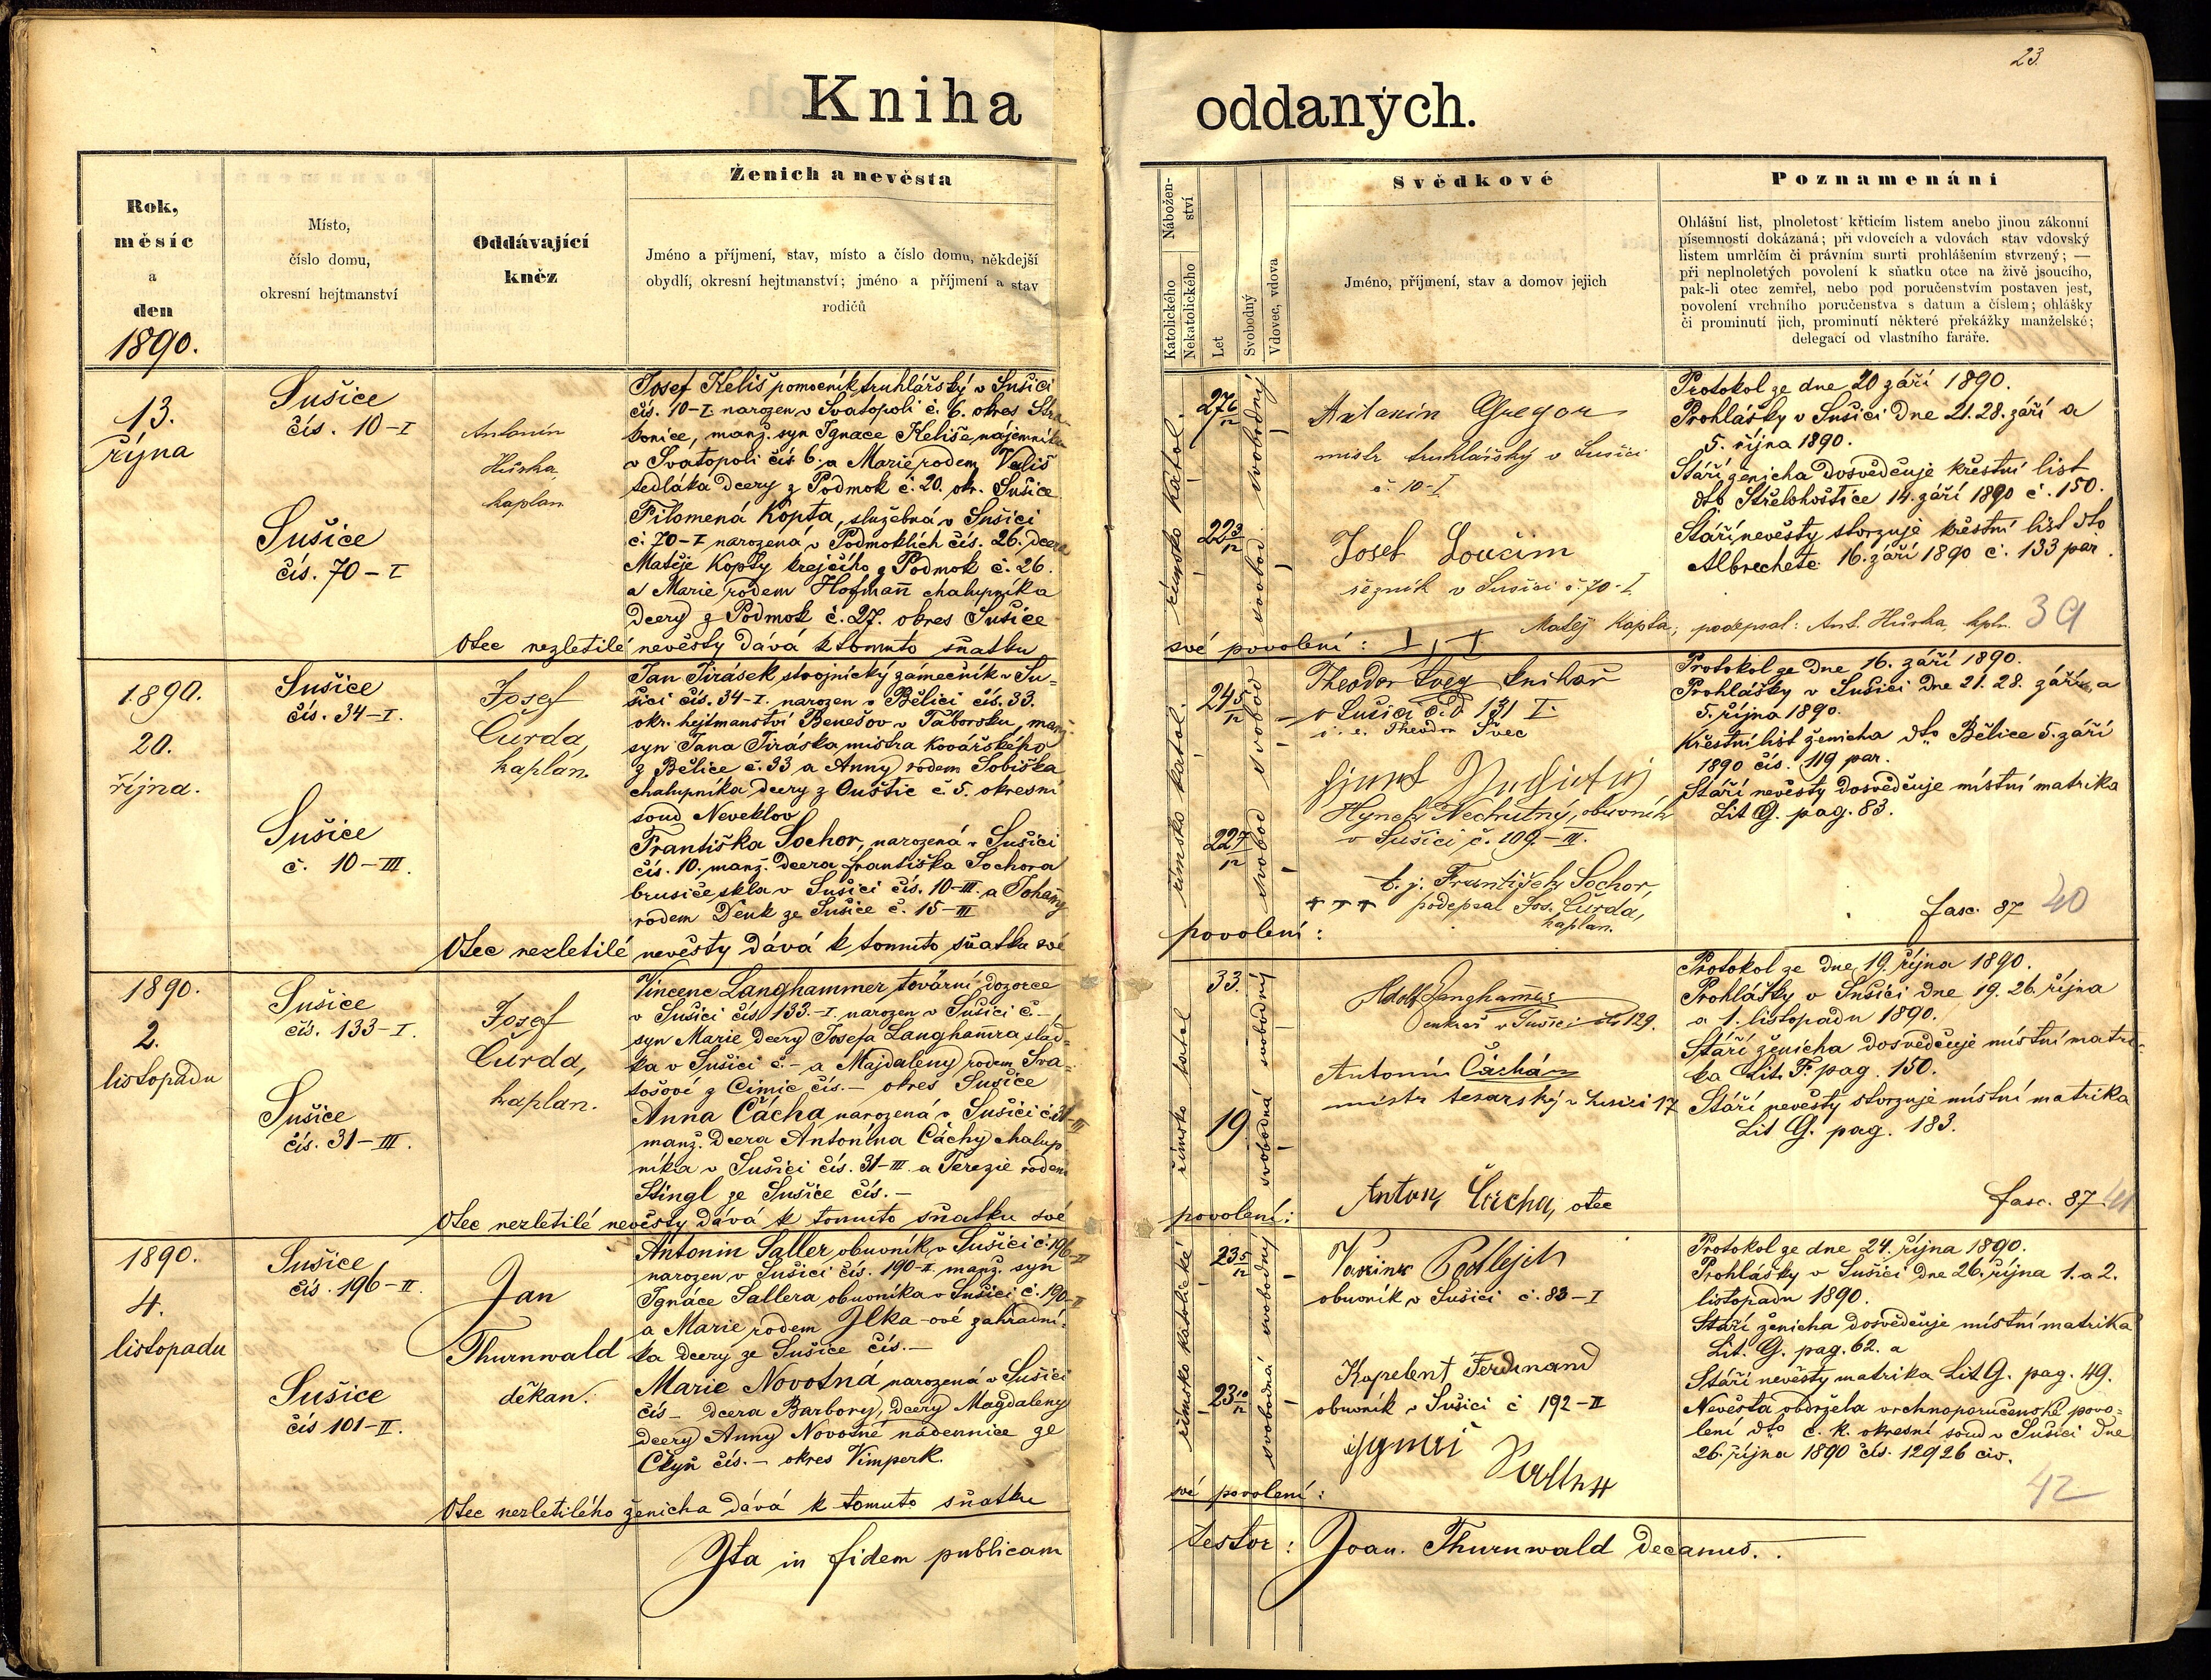 23.
Kniha oddaných.
Rok,
měsíc
a
den
1890.
Místo,
číslo domu,
okresní hejtmanství
Oddávající
kněz
Ženich a nevěsta
Jméno a příjmení, stav, místo a číslo domu, někdejší
obydlí, okresní hejtmanství; jméno a příjmení a stav
rodičů
Nábožen-
ství
Katolického
Nekatolického
Let
Svobodný
Vdovec, vdova
Svědkové
Jméno, příjmení, stav a domov jejich
Poznamenání
Ohlášní list, plnoletost křticím listem anebo jinou zákonní
písemností dokázaná; při vdovcích a vdovách stav vdovský
listem umrlčím či právním smrti prohlášením stvrzený; —
při neplnoletých povolení k sňatku otce na živě jsoucího,
pak-li otec zemřel, nebo pod poručenstvím postaven jest,
povolení vrchního poručenstva s datum a číslem; ohlášky
či prominutí jich, prominutí některé překážky manželské;
delegací od vlastního faráře.
13.
října
Sušice
čís. 10-I
Sušice
čís. 70-I
Antonín
Hůrka,
kaplan
Josef Keliš pomocník truhlářský v Sušici
čís. 10-I. narozen v Svatopoli č. 6. okres Stra
konice, manž. syn Ignace Keliše nájemníka
v Svatopoli čís 6. a Marie rodem Vališ
sedláka dcery z Podmok č. 20. okr. Sušice
Filomená Kopta, služebná v Sušici
č. 70-I narozená v Podmoklích čís. 26. dcera
Matěje Kopty krejčího z Podmok č. 26.
a Marie rodem Hofmann chalupníka
dcery z Podmok č. 27. okres Sušice
Otec nezletilé nevěsty dává k tomuto sňatku
své povolení: † † †
římsko katol.
27 6/12
svobodný
22 3/12
svobod.
Antonín Gregor
mistr truhlářský v Sušici
č. 10-I
Josef Loučim
řezník v Sušici č. 70-I
Matěj Kopta, podepsal: Ant. Hůrka, kpln.
Protokol ze dne 20 září 1890.
Prohlášky v Sušici dne 21. 28. září a
5. října 1890.
Stáří ženicha dosvědčuje křestní list
dto Střelohoštice 14. září 1890 č. 150.
Stáří nevěsty stvrzuje křestní list dto
Albrechtce 16. září 1890 č. 133 par.
39
1890.
20.
října.
Sušice
čís. 34-I.
Sušice
č. 10-III.
Josef
Čurda,
kaplan.
Jan Jirásek strojnický zámečník v Su=
šici čís. 34-I. narozen v Bělici čís. 33.
okr. hejtmanství Benešov v Táborsku, manž
syn Jana Jiráska mistra kovářského
z Bělice č. 33 a Anny rodem Sobíška
chalupníka dcery z Ouštic č. 5. okresní
soud Neveklov
Františka Sochor, narozená v Sušici
čís. 10. manž. dcera Františka Sochora
brusiče skla v Sušici čís. 10-III. a Johany
rodem Denk ze Sušice č. 15-III
Otec nezletilé nevěsty dává k tomuto sňatku své
povolení:
římsko katol.
24 5/12
svobod
22 7/12
svobod
Theodor Švey knihař
v Sušici č.d 131 I.
i. e. Theodor Švec
Hynek Nechutný, obuvník
v Sušici č. 109-III.
t. j. František Sochor,
† † † podepsal Jos. Čurda,
kaplan.
Protokol ze dne 16. září 1890.
Prohlášky v Sušici dne 21. 28. září a
5. října 1890.
Křestní list ženicha dto Bělice 5. září
1890 čís. 119 par.
Stáří nevěsty dosvědčuje místní matrika
Lit G. pag. 83.
fasc. 87 40
1890.
2.
listopadu
Sušice
čís. 133-I.
Sušice
čís. 31-III.
Josef
Čurda,
kaplan.
Vincenc Langhammer tovární dozorce
v Sušici čís. 133.-I. narozen v Sušici č. -
syn Marie dcery Josefa Langhamra slád-
ka v Sušici č. - a Majdaleny rodem Sva=
tošové z Čimic čís. - okres Sušice
Anna Čácha narozená v Sušici č. 31-III
manž. dcera Antonína Čáchy chalup
níka v Sušici čís. 31-III. a Terezie rodem
Stingl ze Sušice čís. -
Otec nezletilé nevěsty dává k tomuto sňatku své
povolení:
římsko katol
33.
svobodný
19.
svobodná
Adolf Langhammer
cukrář v Sušici čís 129.
Antonín Čáchán
mistr tesarský v Susici 17
Anton Čácha, otec
Protokol ze dne 19. října 1890.
Prohlášky v Sušici dne 19. 26. října
a 1. listopadu 1890.
Stáří ženicha dosvědčuje místní matri-
ka Lit. F. pag. 150.
Stáří nevěsty stvrzuje místní matrika
Lit G. pag. 183.
fasc. 87. 41
1890.
4.
listopadu
Sušice
čís. 196-II.
Sušice
čís 101-II.
Jan
Thurnwald
děkan.
Antonín Saller obuvník v Sušici č. 196-II
narozen v Sušici čís. 190-II. manž. syn
Ignáce Sallera obuvníka v Sušici č. 190-II
a Marie rodem Jlka-ové zahradní-
ka dcery ze Sušice čís. -
Marie Novotná narozená v Sušici
čís - dcera Barbory, dcery Magdaleny
dcery Anny Novotné nádennice ze
Čkyň čís. - okres Vimperk.
Otec nezletilého ženicha dává k tomuto sňatku
své povolení:
římsko katolické
23 5/12
svobodný
23 10/12
svobodná
obuvník v Sušici č. 83-I
Kapelent Ferdinand
obuvník v Sušici č 192-II
Protokol ze dne 24. října 1890.
Prohlášky v Sušici dne 26. října 1. a 2.
listopadu 1890.
Stáří ženicha dosvědčuje místní matrika
Lit. G. pag. 62. a
Stáří nevěsty matrika Lit G. pag. 49.
Nevěsta obdržela vrchnoporučenské povo=
lení dto c. k. okresní soud v Sušici dne
26. října 1890 čís. 12926 civ.
42
Ita in fidem publicam
testor: Joan. Thurnwald decanus.